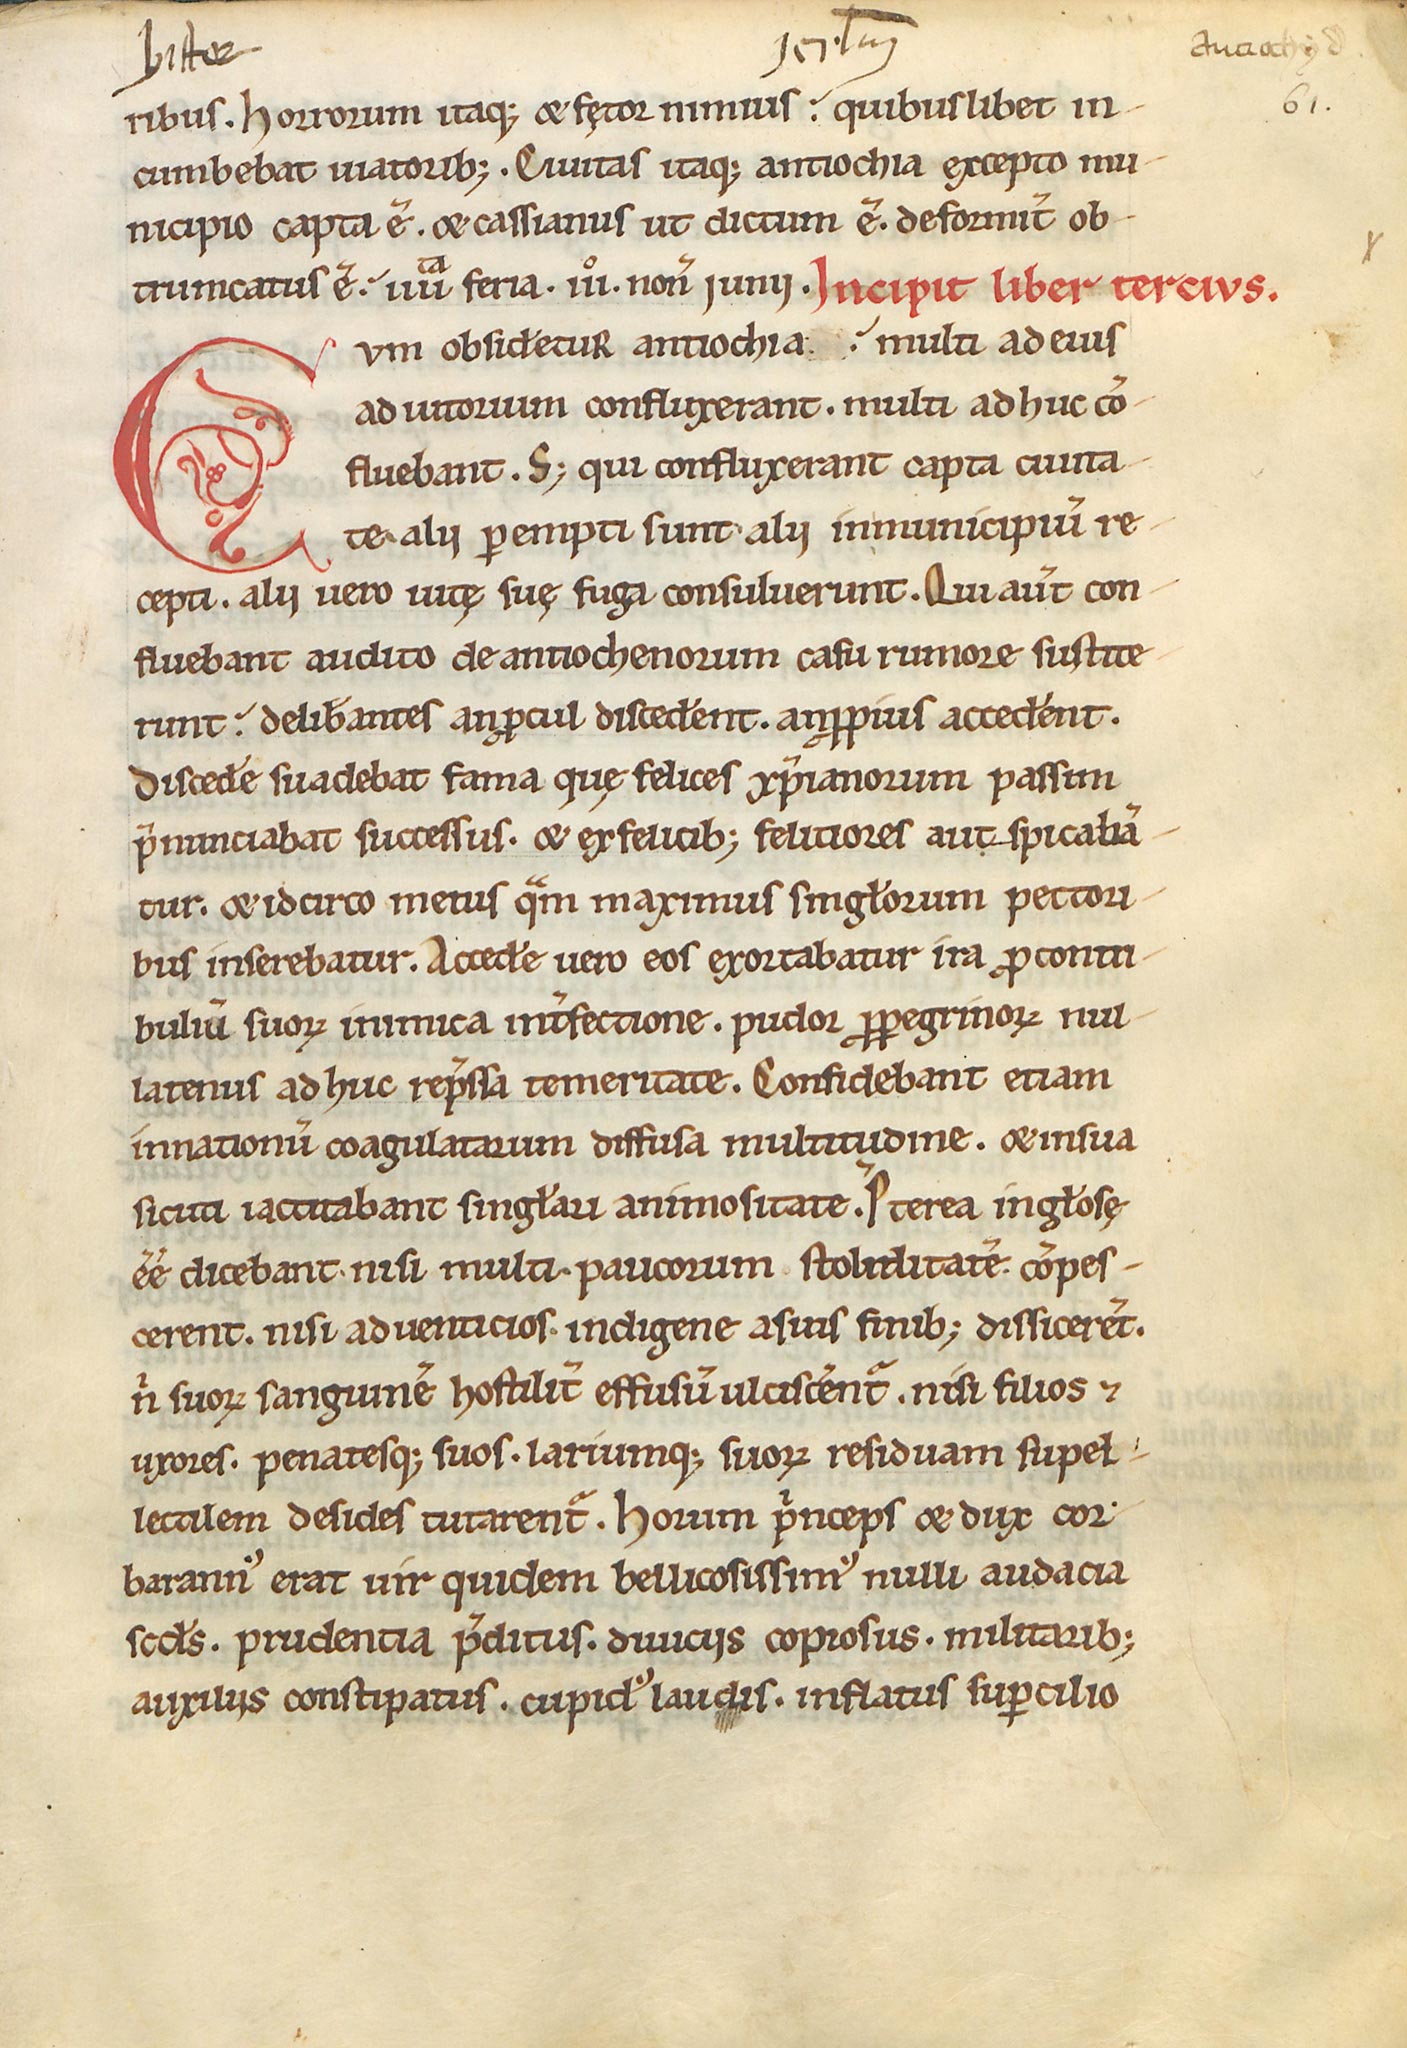 histor
ierl'm
Antiochy d
61.
ribus. horrorum itaq; & fętor nimius? quibuslibet in-
cumbebat uiatorib;. Ciuitas itaq; antiochia excepto mu-
nicipio capta ē. & cassianus ut dictum ē. deformit̄ ob-
truncatus ē. uᵗᵃ feria. iii°. non̄ junij. Incipit liber tercius.
Cvm obsid̄etur antiochia? multi ad eius
adiutorium confluxerant. multi adhuc cō-
fluebant. S; qui confluxerant capta ciuita-
te alij ꝑempti sunt alij inmunicipiū re-
cepti. alij uero uitę suę fuga consuluerunt. Qui aut̄ con-
fluebant audito de antiochenorum casu rumore sustite-
runt? delib̄antes an ꝓcul disced̄ent. an ꝓpius acced̄ent.
Disced̄e suadebat fama quę felices xp̄ianorum passim
p̄nunciabat successus. & ex felicib; felitiores aut spicabā-
tur. & idcirco metus qᵃm maximus singl̄orum pectori-
bus inserebatur. Acced̄e uero eos exortabatur ira ꝓ conti-
buliū suoꝝ inimica int̄fectione. pudor ꝓ ꝑegrinoꝝ nul-
latenus adhuc rep̄ssa temeritate. Confidebant etiam
innationū coagulatarum diffusa multitudine. & insua
sicuti iactitabant singl̄ari animositate. P̄terea ingl̄osę
ēē dicebant nisi multi paucorum stoliditatē cōpes-
cerent. nisi aduenticios indigene asuis finib; dissicerēt.
n̄ suoꝝ sanguinē hostilit̄ effusū ulcisc̄entᵃ. nisi filios ⁊
uxores. penatesq; suos. lariumq; suoꝝ residuam supel-
lectilem desides tutarentᵃ. Horum p̄nceps & dux cor-
barannꝰ erat uir quidem bellicosissimꝰ nulli audacia
scd̄s. prudentia p̄ditus. diuicijs copiosus. militarib;
auxilijs constipatus. cupidꝰ laudis. inflatus suꝑcilio